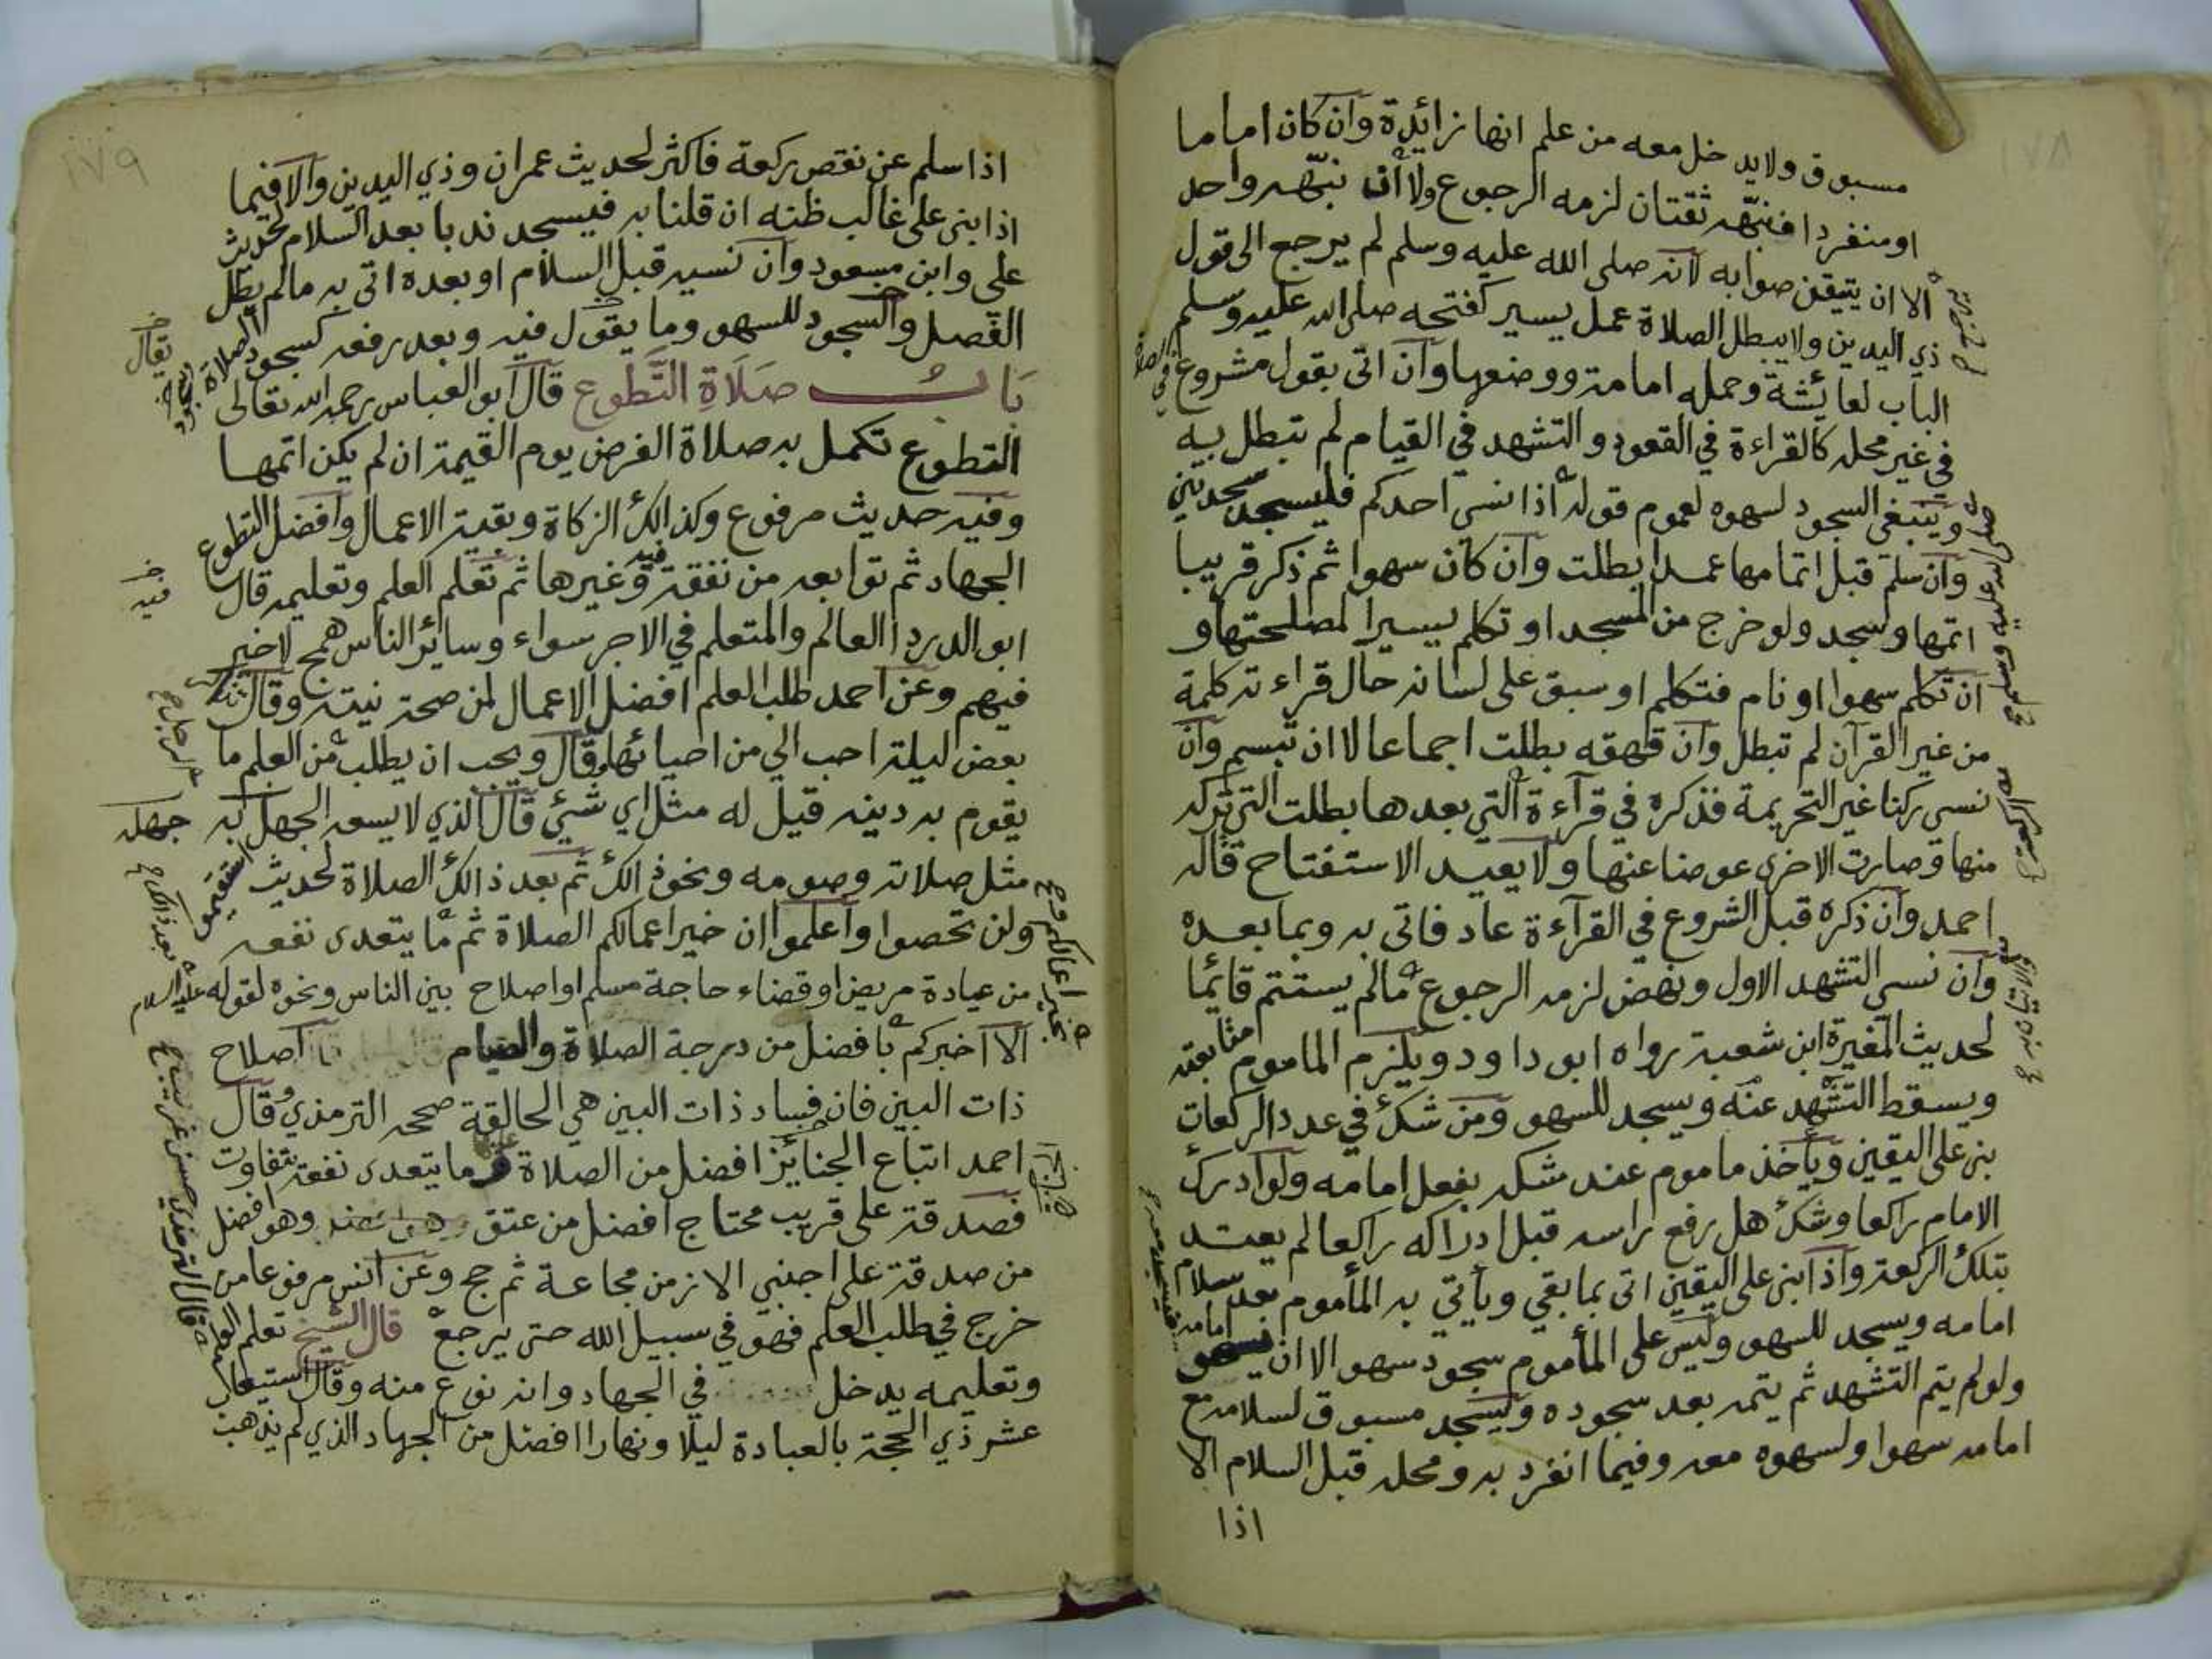 ١٧٨
مسبوق ولا يدخل معه من علم انها زائدة وان كان اماما
او منفردا فنبهه ثقتان لزمه الرجوع ولا ان نبهه واحد
الا ان يتيقن صوابه لانه صلى الله عليه وسلم لم يرجع الى قول
ذي اليدين ولا يبطل الصلاة عمل يسير كفتحه صلى الله عليه وسلم
الباب لعائشة وحمله امامة ووضعها وان اتى بقول مشروع في الصلاة
في غير محله كالقراءة في القعود والتشهد في القيام لم تبطل به
وينبغي السجود لسهوه لعموم قوله اذا نسي احدكم فليسجد سجدتين
وان سلم قبل اتمامها عمدا بطلت وان كان سهوا ثم ذكر قريبا
اتمها وسجد ولو خرج من المسجد او تكلم يسيرا لمصلحتها و
ان تكلم سهوا او نام فتكلم او سبق على لسانه حال قراءته كلمة
من غير القرآن لم تبطل وان قهقه بطلت اجماعا لا ان تبسم وان
نسي ركنا غير التحريمة فذكره في قرآءة التي بعدها بطلت التي تركه
منها وصارت الاخرى عوضا عنها ولا يعيد الاستفتاح قاله
احمد وان ذكره قبل الشروع في القرآءة عاد فاتى به وبما بعده
وان نسي التشهد الاول ونهض لزمه الرجوع ما لم يستتم قائما
لحديث المغيرة ابن شعبة رواه ابو داود ويلزم الماموم متابعته
ويسقط التشهد عنه ويسجد للسهو ومن شك في عدد الركعات
بنى على اليقين ويأخذ ماموم عند شكه بفعل امامه ولو ادرك
الامام راكعا وشك هل رفع راسه قبل ادراكه راكعا لم يعتد
بتلك الركعة واذا بنى على اليقين اتى بما بقي ويأتي به المأموم بعد سلام
امامه ويسجد للسهو وليس على المأموم سجود سهو الا ان يسهو امامه فيسجد معه
ولو لم يتم التشهد ثم يتمه بعد سجوده ويسجد مسبوق لسلامه مع
امامه سهوا ولسهوه معه وفيما انفرد به ومحله قبل السلام الا
اذا
١٧٩
اذا سلم عن نقص ركعة فاكثر لحديث عمران وذي اليدين والا فيما
اذا بنى على غالب ظنه ان قلنا به فيسجد ندبا بعد السلام لحديث
علي وابن مسعود وان نسيه قبل السلام او بعده اتى به ما لم يطل
الفصل والسجود للسهو وما يقول فيه وبعد رفعه كسجود الصلاة
باب صلاة التطوع قال ابو العباس رحمه الله تعالى
التطوع تكمل به صلاة الفرض يوم القيمة ان لم يكن اتمها
وفيه حديث مرفوع وكذالك الزكاة وبقية الاعمال وافضل التطوع
الجهاد ثم توابعه من نفقة فيه وغيرها ثم تعلم العلم وتعليمه قال
ابو الدردا العالم والمتعلم في الاجر سواء وسائر الناس همج لا خير
فيهم وعن احمد طلب العلم افضل الاعمال لمن صحت نيته وقال تذكر
بعض ليلة احب الي من احيائها وقال ويجب ان يطلب من العلم ما
يقوم به دينه قيل له مثل اي شئي قال الذي لا يسعه الجهل به
مثل صلاته وصومه ونحو ذالك ثم بعد ذالك الصلاة لحديث استقيمو
ولن تحصوا واعلموا ان خير اعمالكم الصلاة ثم ما يتعدى نفعه
من عيادة مريض او قضاء حاجة مسلم او اصلاح بين الناس ونحوه لقوله عليه السلام
الا اخبركم بافضل من درجة الصلاة والصيام اصلاح
ذات البين فان فساد ذات البين هي الحالقة صححه الترمذي وقال
احمد اتباع الجنائز افضل من الصلاة وما يتعدى نفعه يتفاوت
فصدقة على قريب محتاج افضل من عتق وهو افضل
من صدقة على اجنبي الا زمن مجاعة ثم حج وعن انس مرفوعا من
خرج في طلب العلم فهو في سبيل الله حتى يرجع قال الشيخ تعلم العلم
وتعليمه يدخل في الجهاد وانه نوع منه وقال استيعاب
عشر ذي الحجة بالعبادة ليلا ونهارا افضل من الجهاد الذي لم يذهب
تعالى
فيه
الرجل
جهله
بعد ذالك
قال الترمذي حسن غريب